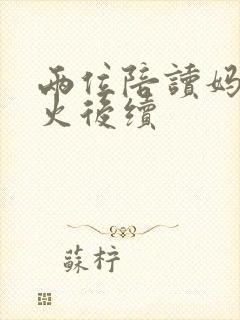 兩位陪讀媽
火後續
蘇柠